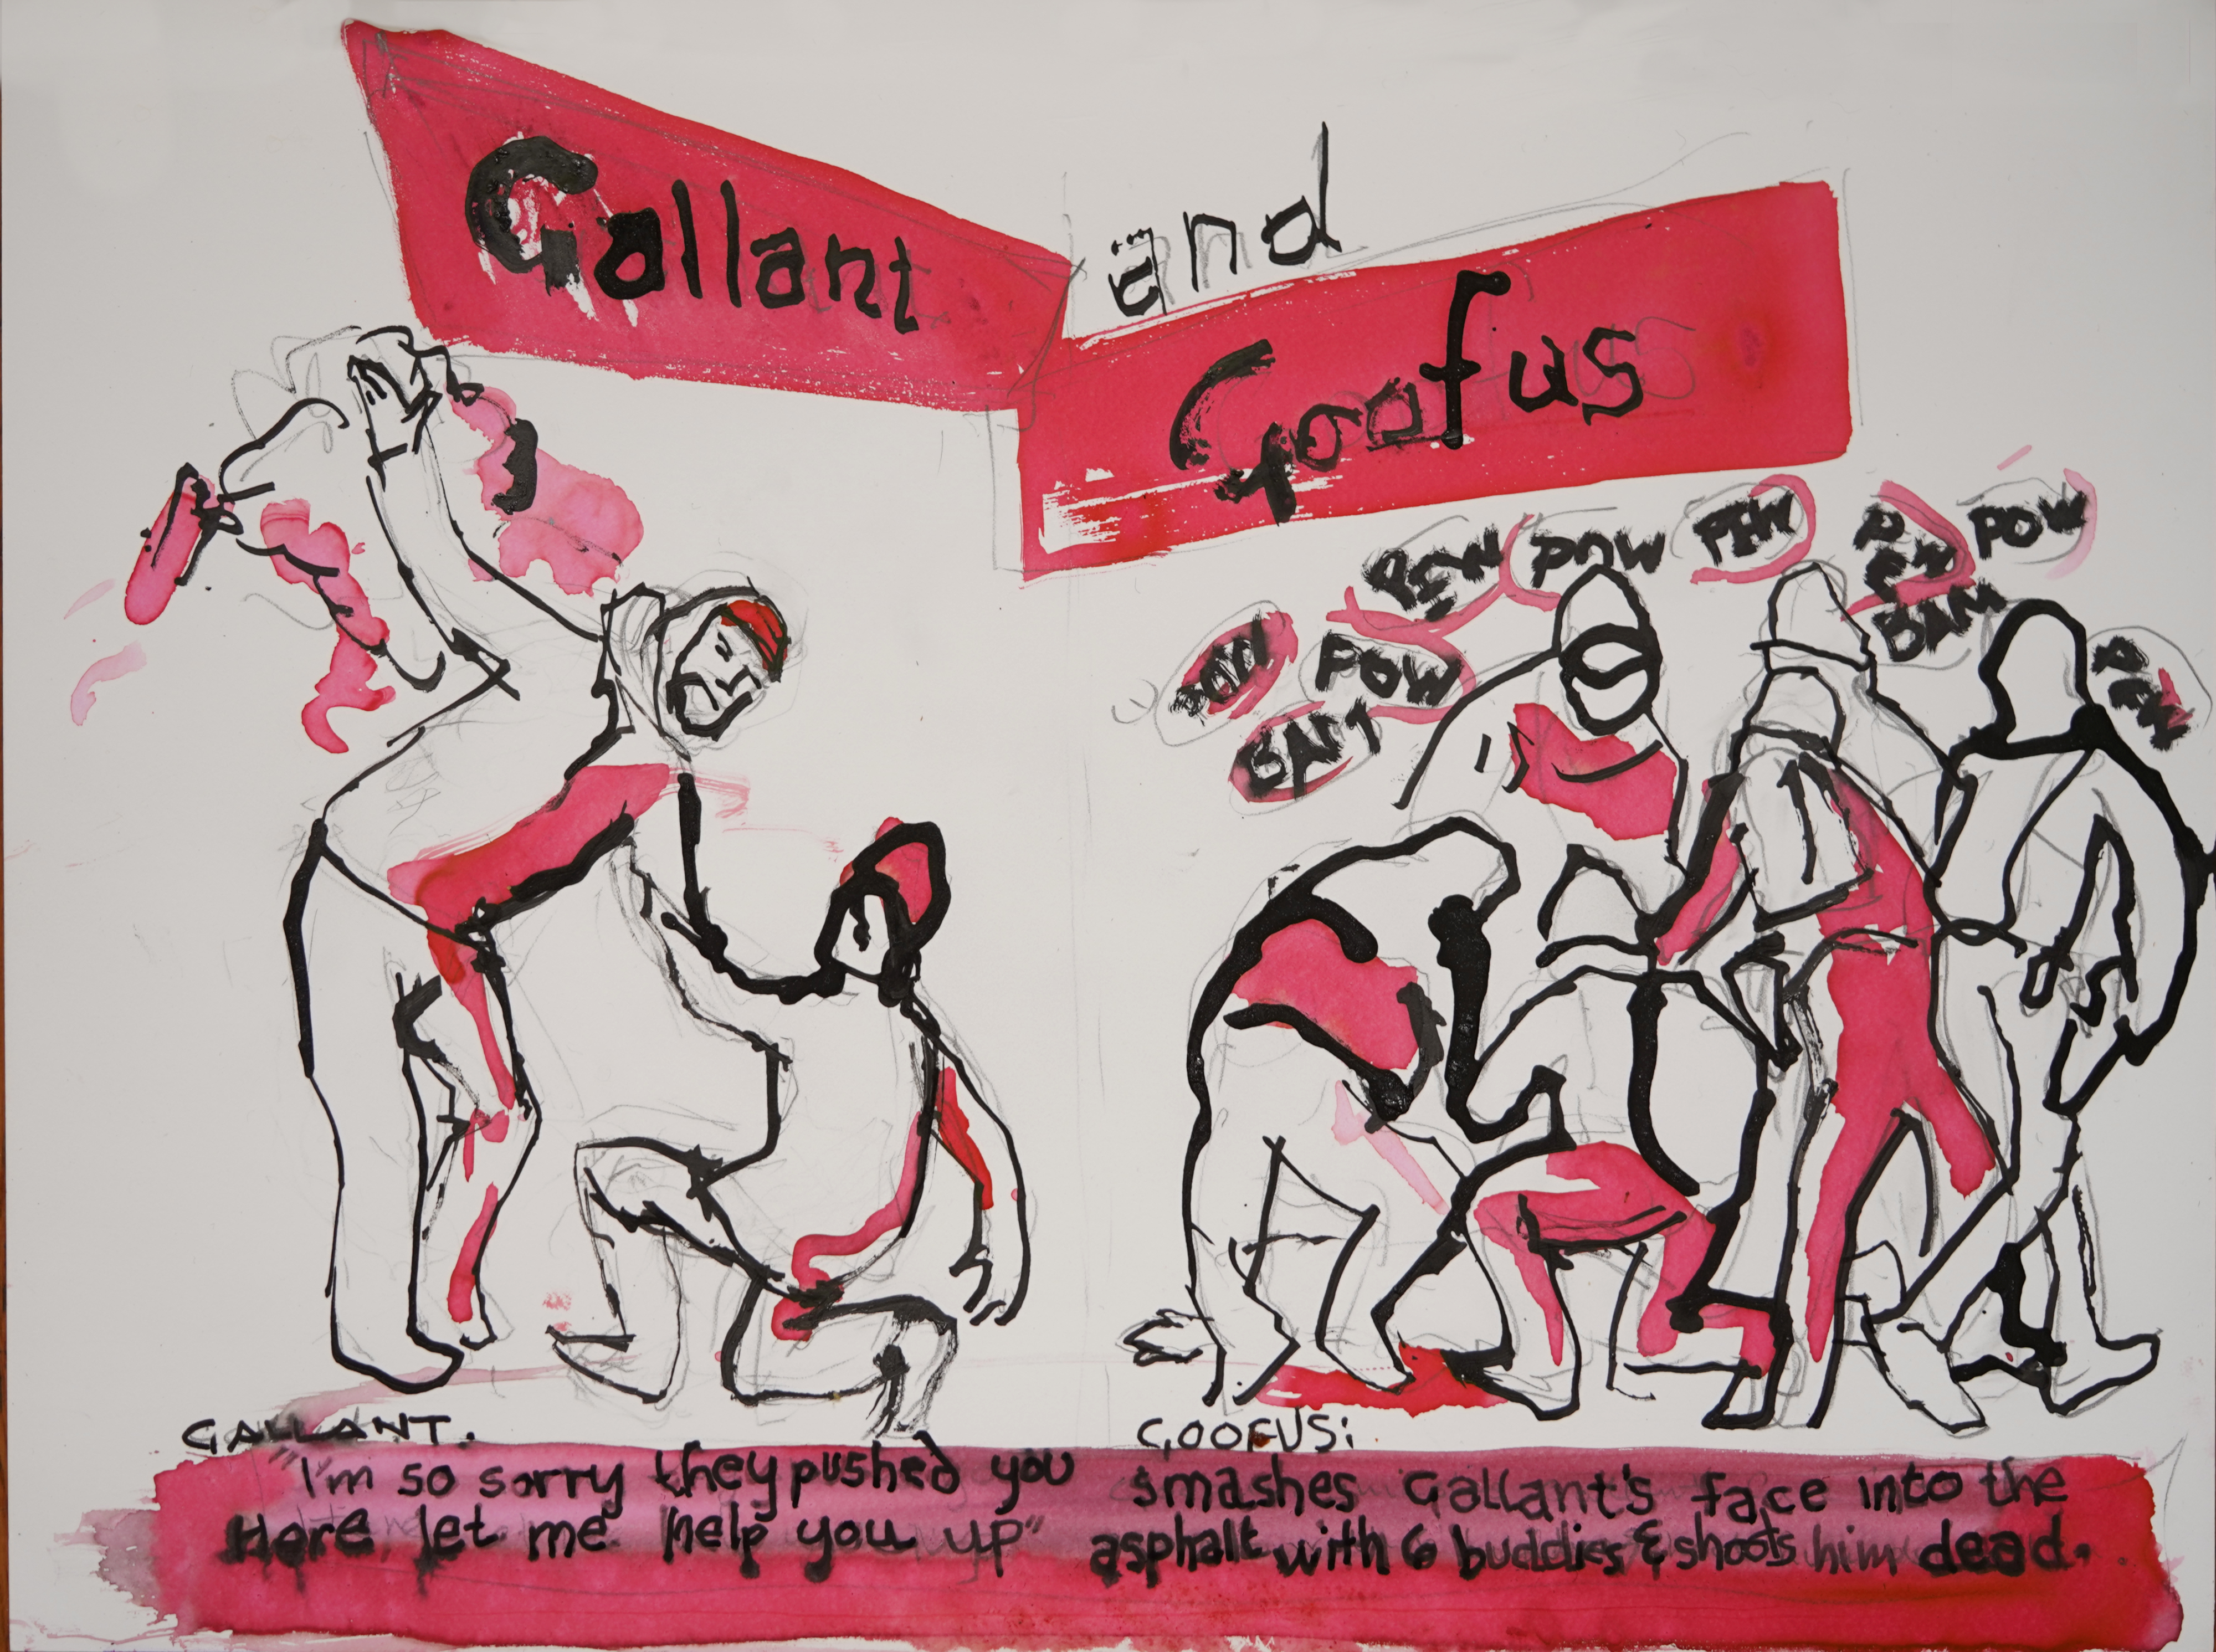 Gallant
and
Goofus
PEW
POW
PEW
PEW
POW
BAM
POW
POW
BAM
PEW
GALLANT.
"I'm so sorry they pushed you
Here let me help you up"
GOOFUS:
smashes Gallant's face into the
asphalt with 6 buddies & shoots him dead.